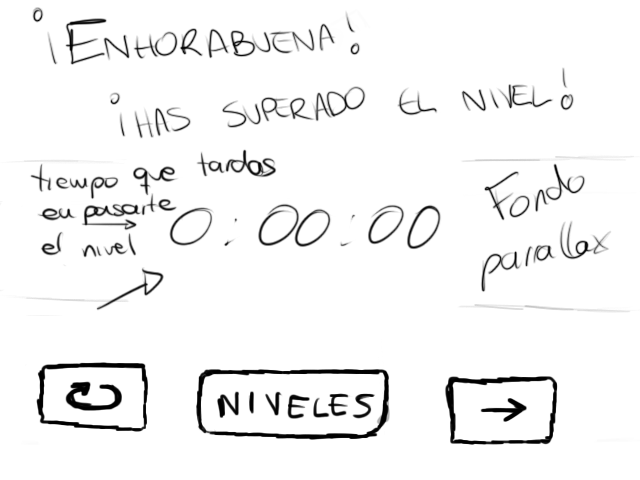 ¡ENHORABUENA!
¡HAS SUPERADO EL NIVEL!
tiempo que tardas
en pasarte
el nivel
0:00:00
Fondo
parallax
NIVELES